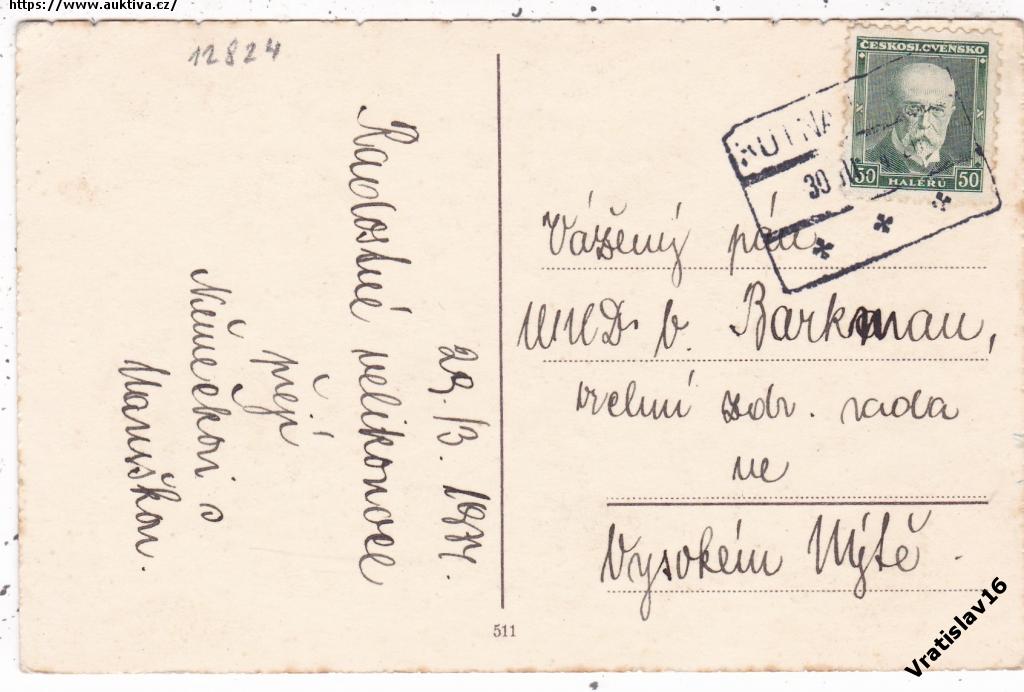 https://www.auktiva.cz/
12824
Radostné velikonoce
přejí
Němečkovi s
Maruškou.
29./3. 1934.
ČESKOSLOVENSKO
50 HALÉRŮ 50
KUTNÁ
30
Vážený pán
MUDr.
Barkman,
vrchní zdr. rada
ve
Vysokém Mýtě.
511
Vratislav16